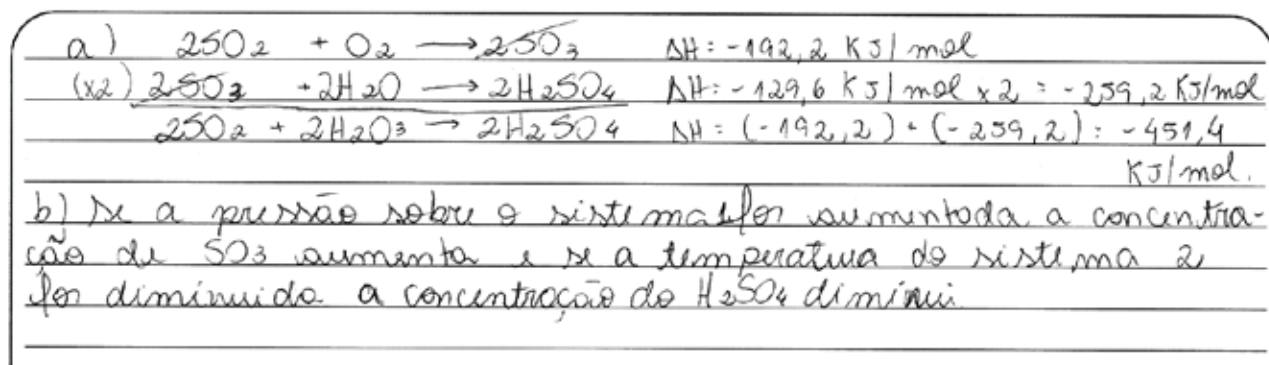 a) 2SO2 + O2 → 2SO3 ΔH: -192,2 KJ/mol
(x2) 2SO3 +2H2O → 2H2SO4 ΔH: -129,6 KJ/mol x 2 = -259,2 KJ/mol
2SO2 + 2H2O3 → 2H2SO4 ΔH = (-192,2) + (-259,2): -451,4
KJ/mol.
b) Se a pressão sobre o sistema 1 for aumentada a concentra-
ção de SO3 aumenta e se a temperatura do sistema 2
for diminuida a concentração do H2SO4 diminui.